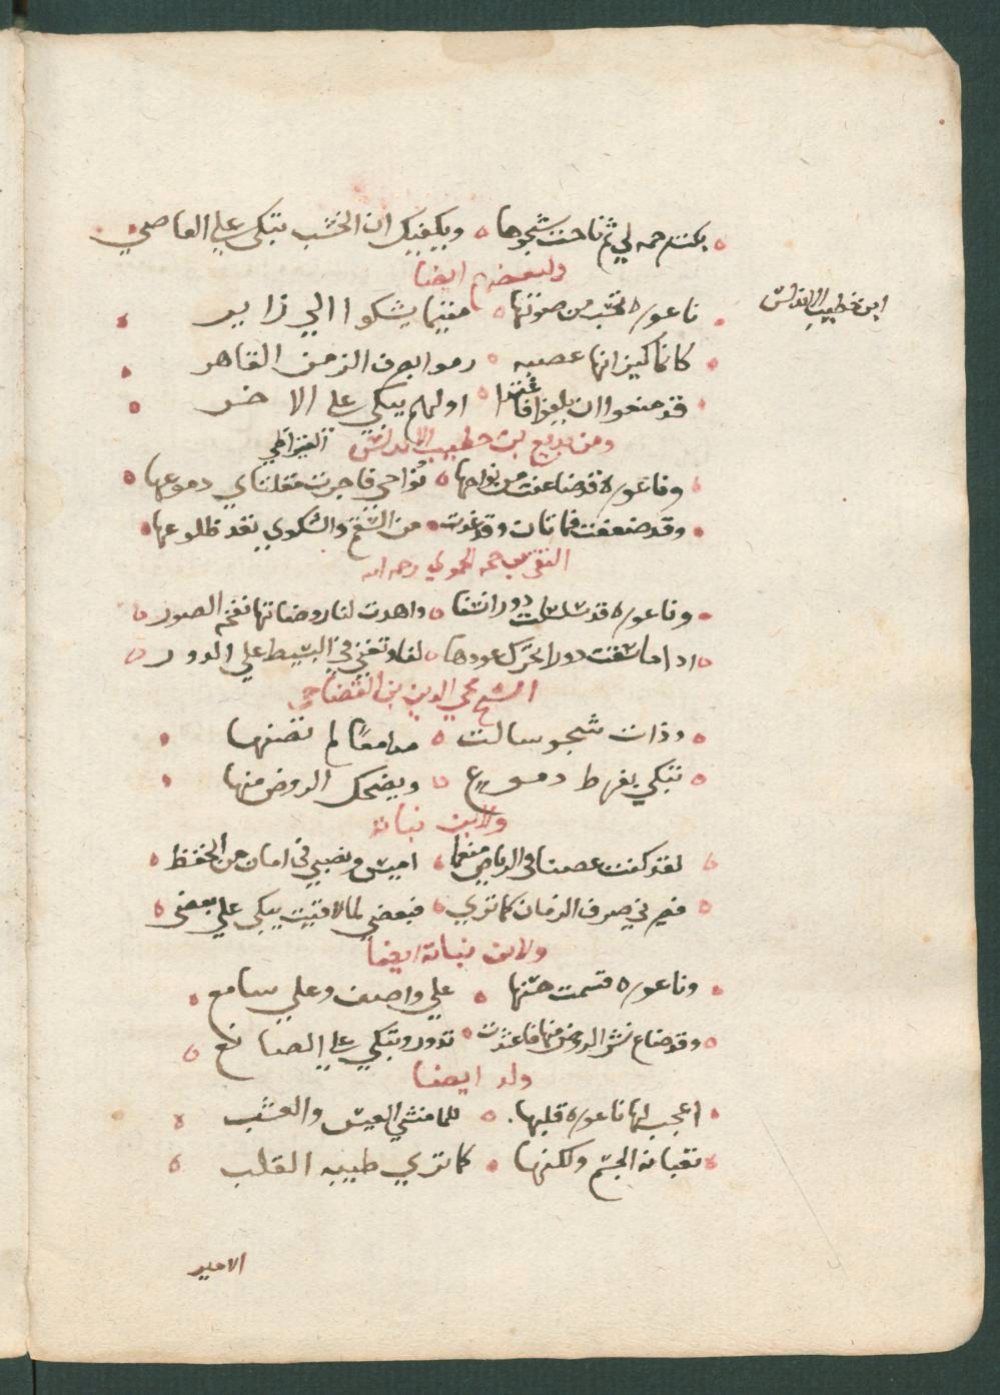 بكت رحمة لي ثم ناحت بشجوها ويكفيك ان الخشب تبكي علي العاصي
ولبعضهم ايضا
ابن خطيب الاندلس
ناعوره تحسب من صوتها متيما يشكوا الي زاير
كانما كيزانها عصبه رموا بصرف الزمن القاهر
قد منعوا ان يلتقوا فاغتدا اولهم يبكي علي الاخر
ومن بديع بن خطيب الاندلس الغرناطي
وناعوره قد ضاعفت من نواحها نواحي فاجرت مقلتاي دموعها
وقد ضعفت مما تان وقد غدت من السقم والشكوي تعد ظلوعها
التقي بن حجه الحموي رحمه الله
وناعوره قد سلسلت دور انسنا واهدت لنا روضاتها نفخة الصور
اذا ما سقت دورا تحرك عودها لنا وتغني في البسيط علي الدور
الشيخ محي الدين بن القضاحي
وذات شجو سالت مدامعا لم تصنها
تبكي بفرط دموع ويضحك الروض منها
ولابن نباتة
لقد كنت غصنا في الرياض منعما اميس ونصبي في امان من الخفض
فيم في صرف الزمان كما تري فبعضي لما لاقيت يبكي علي بعضي
ولابن نباتة ايضا
وناعوره قسمت حسنها علي واصف وعلي سامع
وقد ضاع نشر الروض منها فاغتدت تدور وتبكي علي الضائع
وله ايضا
اعجب لها ناعوره قلبها للما منشي العيش والعشب
تعبانة الجسم ولكنها كما تري طيبه القلب
الامير